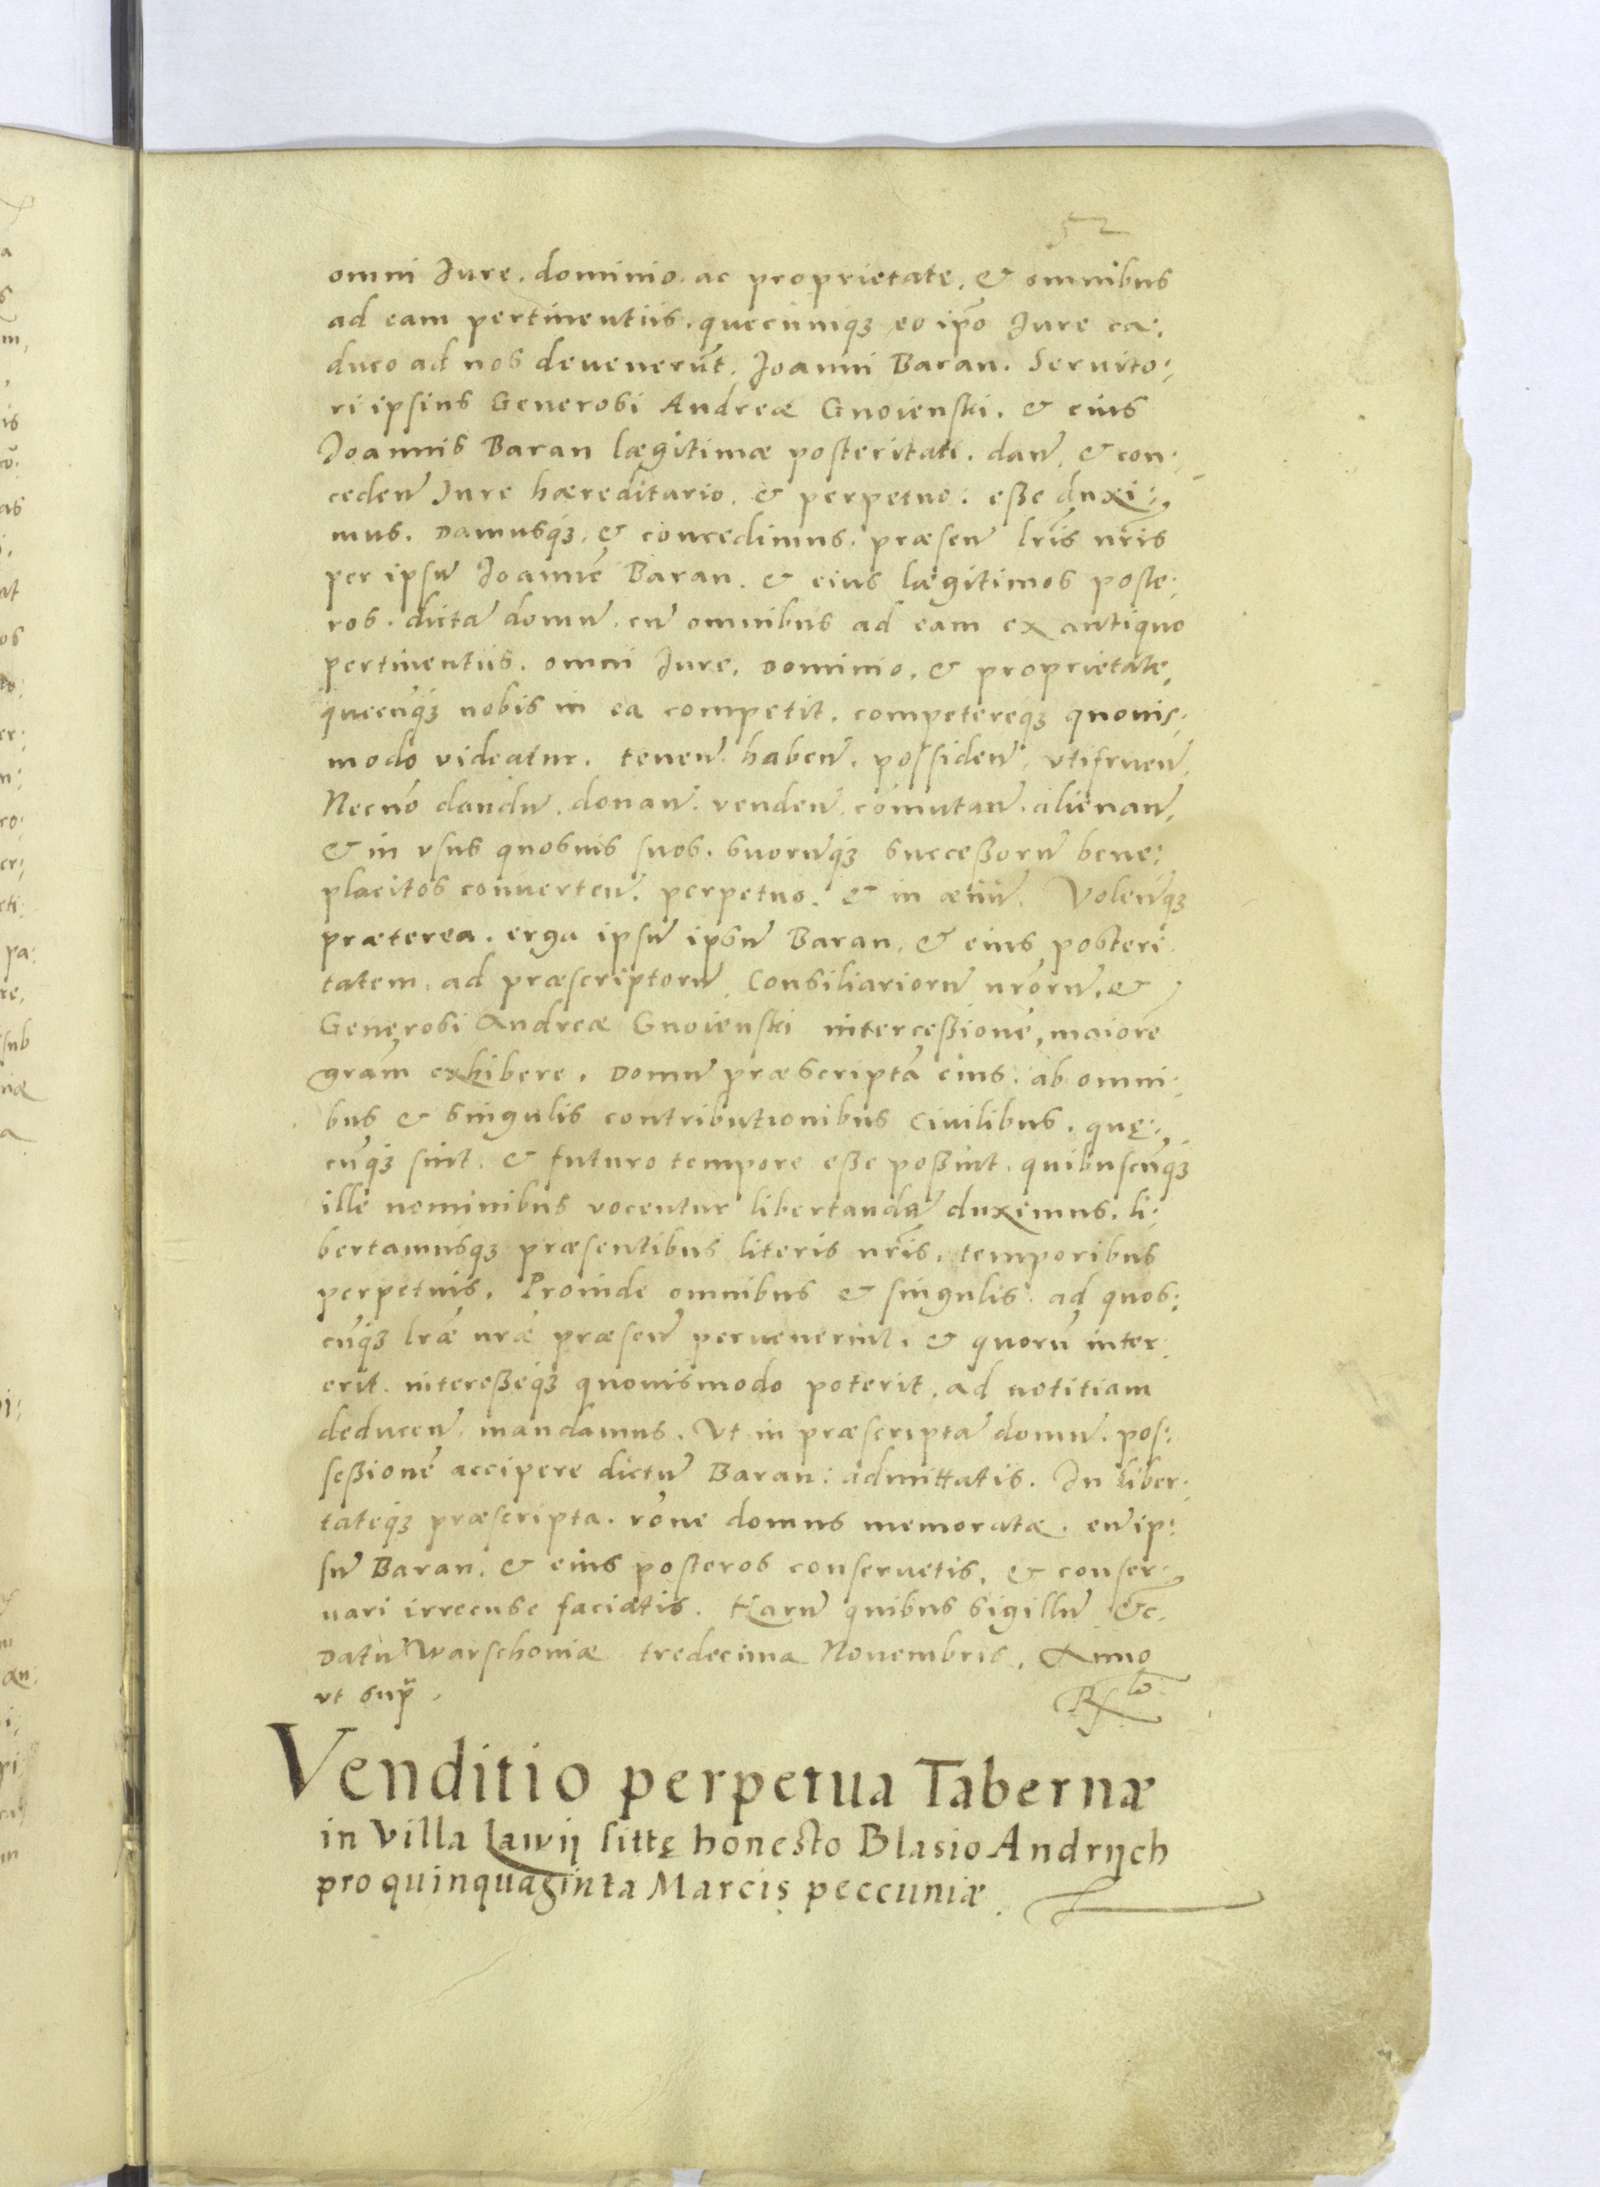 52
omni Jure. dominio. ac proprietate. & omnibus
ad eam pertinentiis. quecunqꝫ eo ip̃o Jure ca:
duco ad nos deuenerũt. Joanni Baran. Seruito:
ri ipsius Generosi Andreæ Gnoienski. & eius
Joannis Baran lægitimæ posteritati. dañ. & con:
cedeñ Jure hæreditario. & perpetuo. eße duxi:
mus. Damusqꝫ. & concedimus. præseñ lr̃is nr̃is
per ipsũ Joannẽ Baran. & eius lægitimos poste:
ros. dictã domũ. cũ omnibus ad eam ex antiquo
pertinentiis. omni Jure. Dominio. & proprietate.
quecũqꝫ nobis in ea competit. competereqꝫ quouis:
modo videatur. teneñ. habeñ. possideñ. vtifrueñ.
Necnõ dandũ. donañ. vendeñ. cõmutañ. alienañ.
& in vsus quosuis suos. suorũqꝫ succeßorũ bene:
placitos conuerteñ. perpetuo. & in æuũ. Voleñqꝫ
præterea. erga ipsũ ipsũ Baran. & eius posteri
tatem. ad præscriptorũ Consiliariorũ nr̃orũ. &
Generosi Andreæ Gnoienski interceßionẽ, maiorẽ
gram̃ exhibere. Domũ præscriptã eius. ab omni:
bus & singulis contributionibus Ciuilibus. quę:
cũqꝫ sint. & futuro tempore eße poßint. quibuscũqꝫ
ille nominibus vocentur libertandã duximus. li:
bertamusqꝫ præsentibus literis nr̃is. temporibus
perpetuis. Proinde omnibus & singulis. ad quos:
cũqꝫ lr̃æ nr̃æ præseñ peruenerint. & quorũ inter
erit. intereßeqꝫ quouismodo poterit. ad notitiam
deduceñ. mandamus. Vt in præscriptã domũ. pos:
seßionẽ accipere dictũ Baran: admittatis. In liber:
tateqꝫ præscripta. rõne domus memoratæ. eũ ip:
sũ Baran. & eius posteros conseruetis. & conser:
uari irrecuse faciatis. Harũ quibus sigillũ &c.
Datũ Warschouiæ tredecima Nouembris. Anno
vt sup̃.
Venditio perpetua Tabernæ
in Villa Lawij sittę honesto Blasio Andrijch
pro quinquaginta Marcis peccuniæ.